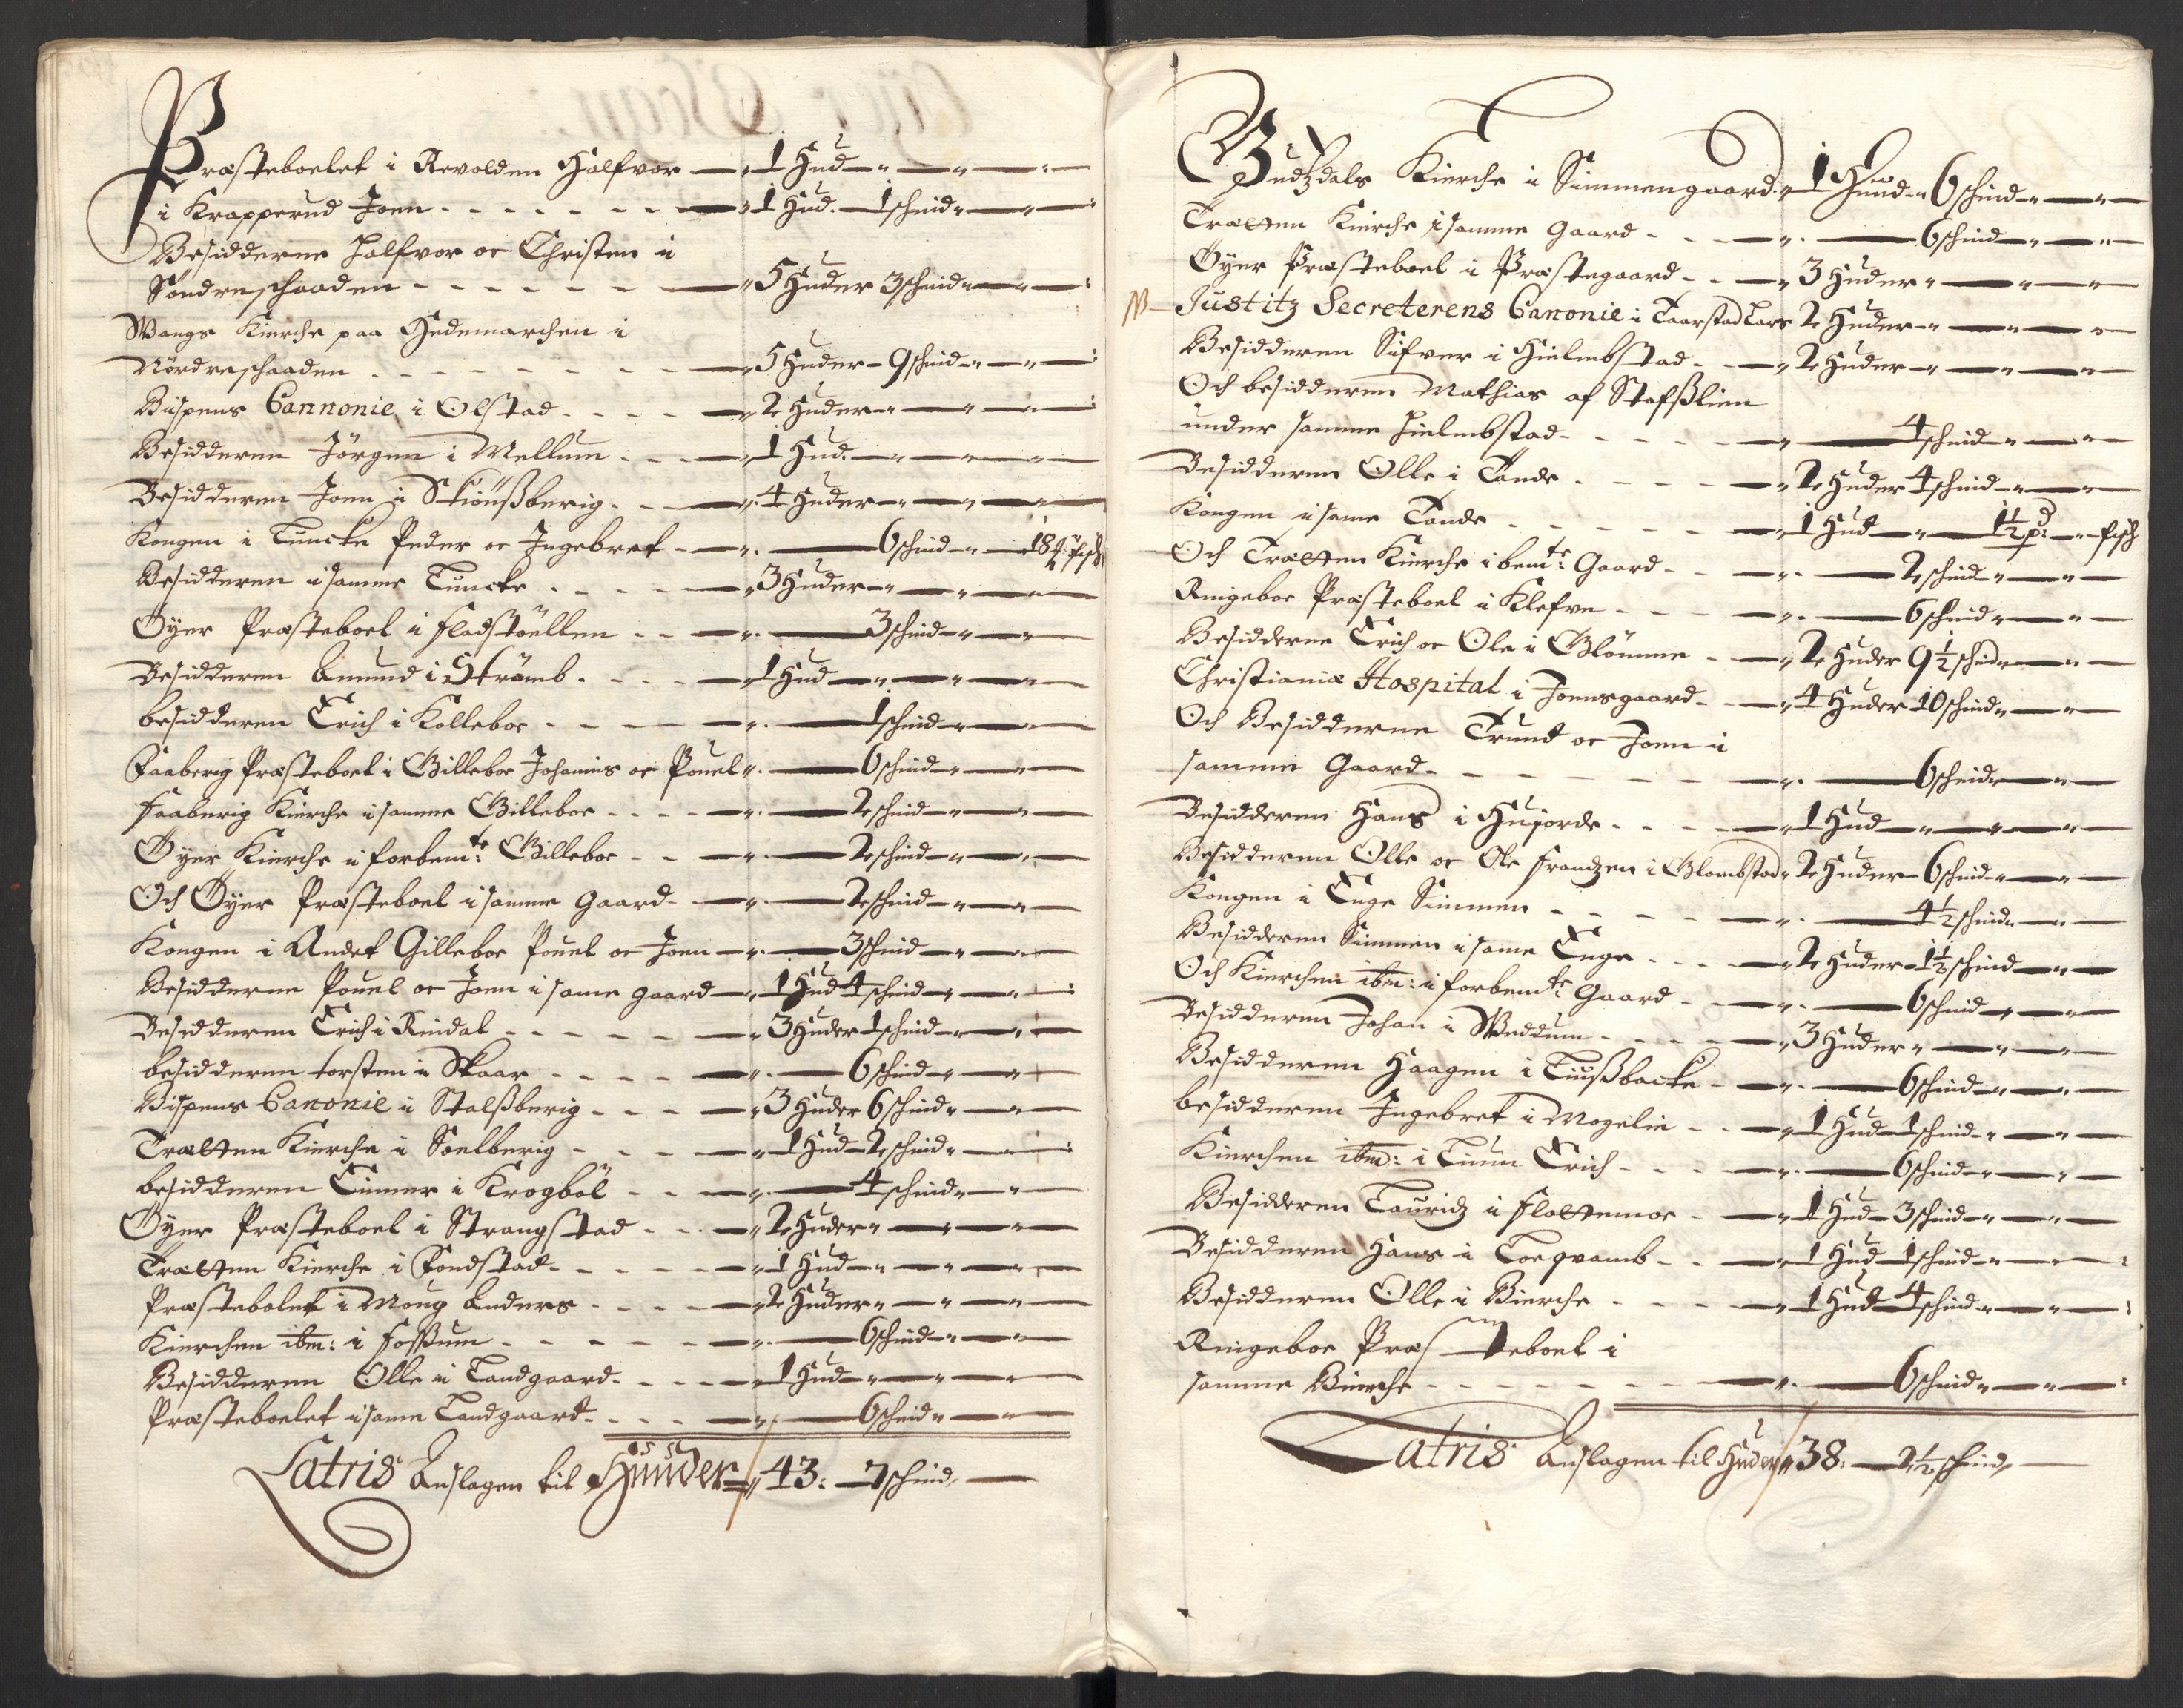 Præsteboelet i Revolden Halfvor — 1 Hud
i Krapperud Joen — 1 Hud. 1 schind
Besidderne Halfvor oc Christen i
Söndreschaaden — 5 Huder 3 schind
Wangs Kierche paa Hedemarchen i
Nördreschaaden — 5 Huder 9 schind
Bispens Cannonie i Olstad — 2 Huder
Besidderen Jörgen i Mellum — 1 Hud
Besidderen Joen i Skiönßberig — 4 Huder
Kongen i Tuncke Peder oc Ingebret — 6 schind — 18 fisch
Besidderen i samme Tuncke — 3 Huder
Öyer Præsteboel i Fladstöellen — 3 schind
Besidderen Amund i Strömb — 1 Hud
besidderen Erich i Kolleboe — 1 schind
Faaberig Præsteboel i Gilleboe Johannis oc Pouel — 6 schind
Faaberig Kierche i samme Gilleboe — 2 schind
Öyer Kierche i forbemte: Gilleboe — 2 schind
Och Öyer Præsteboel i samme Gaard — 2 schind
Kongen i Andet Gilleboe Pouel oc Joen — 3 schind
Besidderne Pouel oc Joen i same gaard — 1 Hud 4 schind
Besidderen Erich i Rindal — 3 Huder 1 schind
besidderen torsten i Skaar — 6 schind
Bispens Canonie i Stalßberig — 3 Huder 6 schind
Trætten Kierche i Soelberig — 1 Hud 2 schind
besidderen Einner i Krogböl — 4 schind
Öyer Præsteboel i Strangstad — 2 Huder
Trætten Kierche i Fondstad — 1 Hud
Præstebolet i Moug Anders — 2 Huder
Kierchen ibm: i Foßum — 6 schind
Besidderen Olle i Landgaard — 1 Hud
Præsteboelet i same Landgaard — 6 schind
Latris Anslagen til Huuder 43: 7 schind
Gudtzdals Kierche i Simmengaard — 1 Huud 6 schind
Trætten Kierche i samme Gaard — 6 schind
Öyer Præsteboel i Præstegaard — 3 Huder
NB Justitz Secreterens Canonie i Taarstad Lars 2 Huder
Besidderen Sifver i Hielmbstad — 2 Huder
Och besidderen Mathias af Stafßlien
under samme Hielmbstad — 4 schind
Besidderen Olle i Tande — 2 Huder 4 schind
Kongen i same Tande — 1 Hud — 1½ pd: fisch
Och Trætten Kierche i bemte: Gaard — 2 schind
Ringeboe Præsteboel i Klefve — 6 schind
Besidderne Erich oc Ole i Glömme — 2 Huder 9½ schind
Christianiæ Hospital i Joensgaard — 4 Huder 10 schind
Och Besidderne Trund oc Joen i
samme Gaard — 6 schind
Besidderen Hans i Husorde — 1 Hud
Besidderen Olle oc Ole Frandzen i Glombstad 2 Huder 6 schind
Kongen i Enge Simmen — 4½ schind
Besidderen Simmen i same Enge — 2 Huder 1½ schind
Och Kierchen ibm: i forbemte Gaard — 6 schind
Besidderen Johan i Weddum — 3 Huder
Besidderen Haagen i Tiußbacke — 6 schind
besidderen Ingebret i Mogelie — 1 Hud 1 schind
Kierchen ibm: i Tiuun Erich — 6 schind
Besidderen Lauridz i Flattemoe — 1 Hud 3 schind
Besidderen Hans i Torqvamb — 1 Hud 1 schind
Besidderen Olle i Bierche — 1 Hud 4 schind
Ringeboe Præsteboel i
samme Bierche — 6 schind
Latris Anslagen til Huder 38: 2½ schind